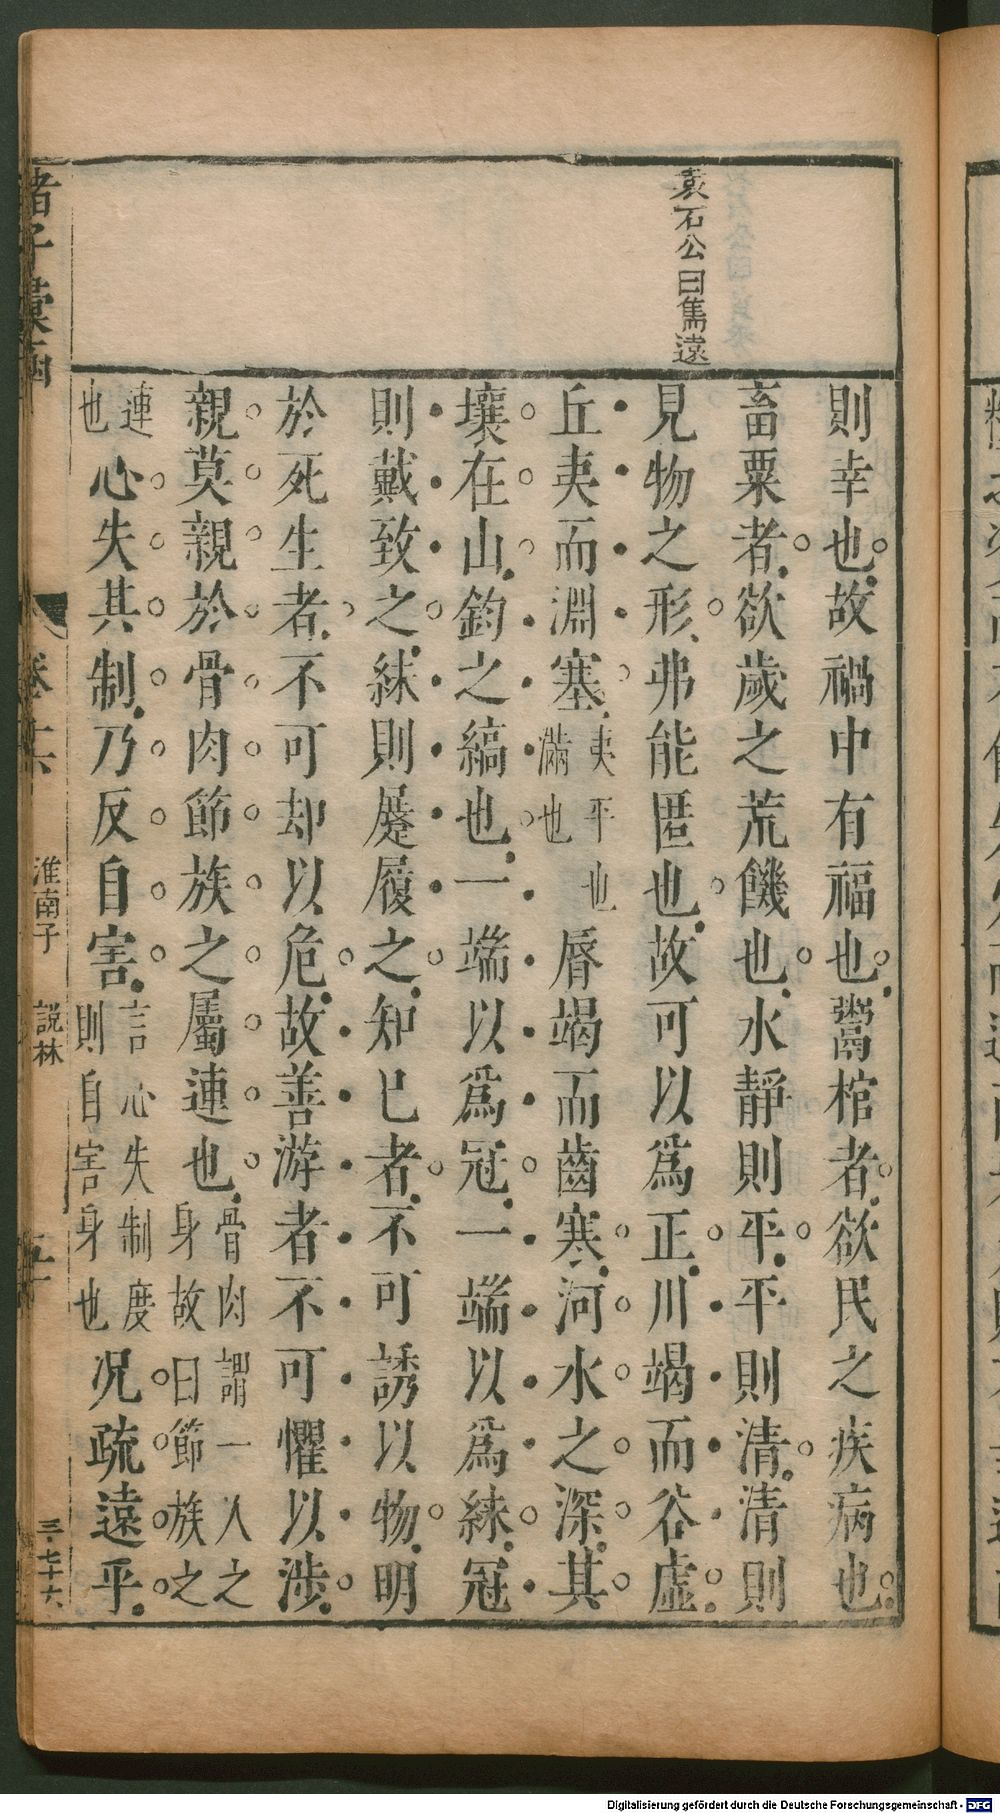 袁石公曰雋遠
則幸也故禍中有福也鬻棺者欲民之疾病也
畜粟者欲歲之荒饑也水靜則平平則清清則
見物之形弗能匿也故可以爲正川竭而谷虚
丘夷而淵塞夷平也滿也脣竭而齒寒河水之深其
壤在山鈞之縞也一端以爲冠一端以爲絑冠
則戴致之絑則屣履之知已者不可誘以物明
於死生者不可却以危故善游者不可懼以涉
親莫親於骨肉節族之屬連也骨肉謂一人之身故曰節族之
連也心失其制乃反自害言心失制度則自害身也况疏遠乎
諸子彙函
卷十六
淮南子 説林
五
三七十六
Digitalisierung gefördert durch die Deutsche Forschungsgemeinschaft - DFG